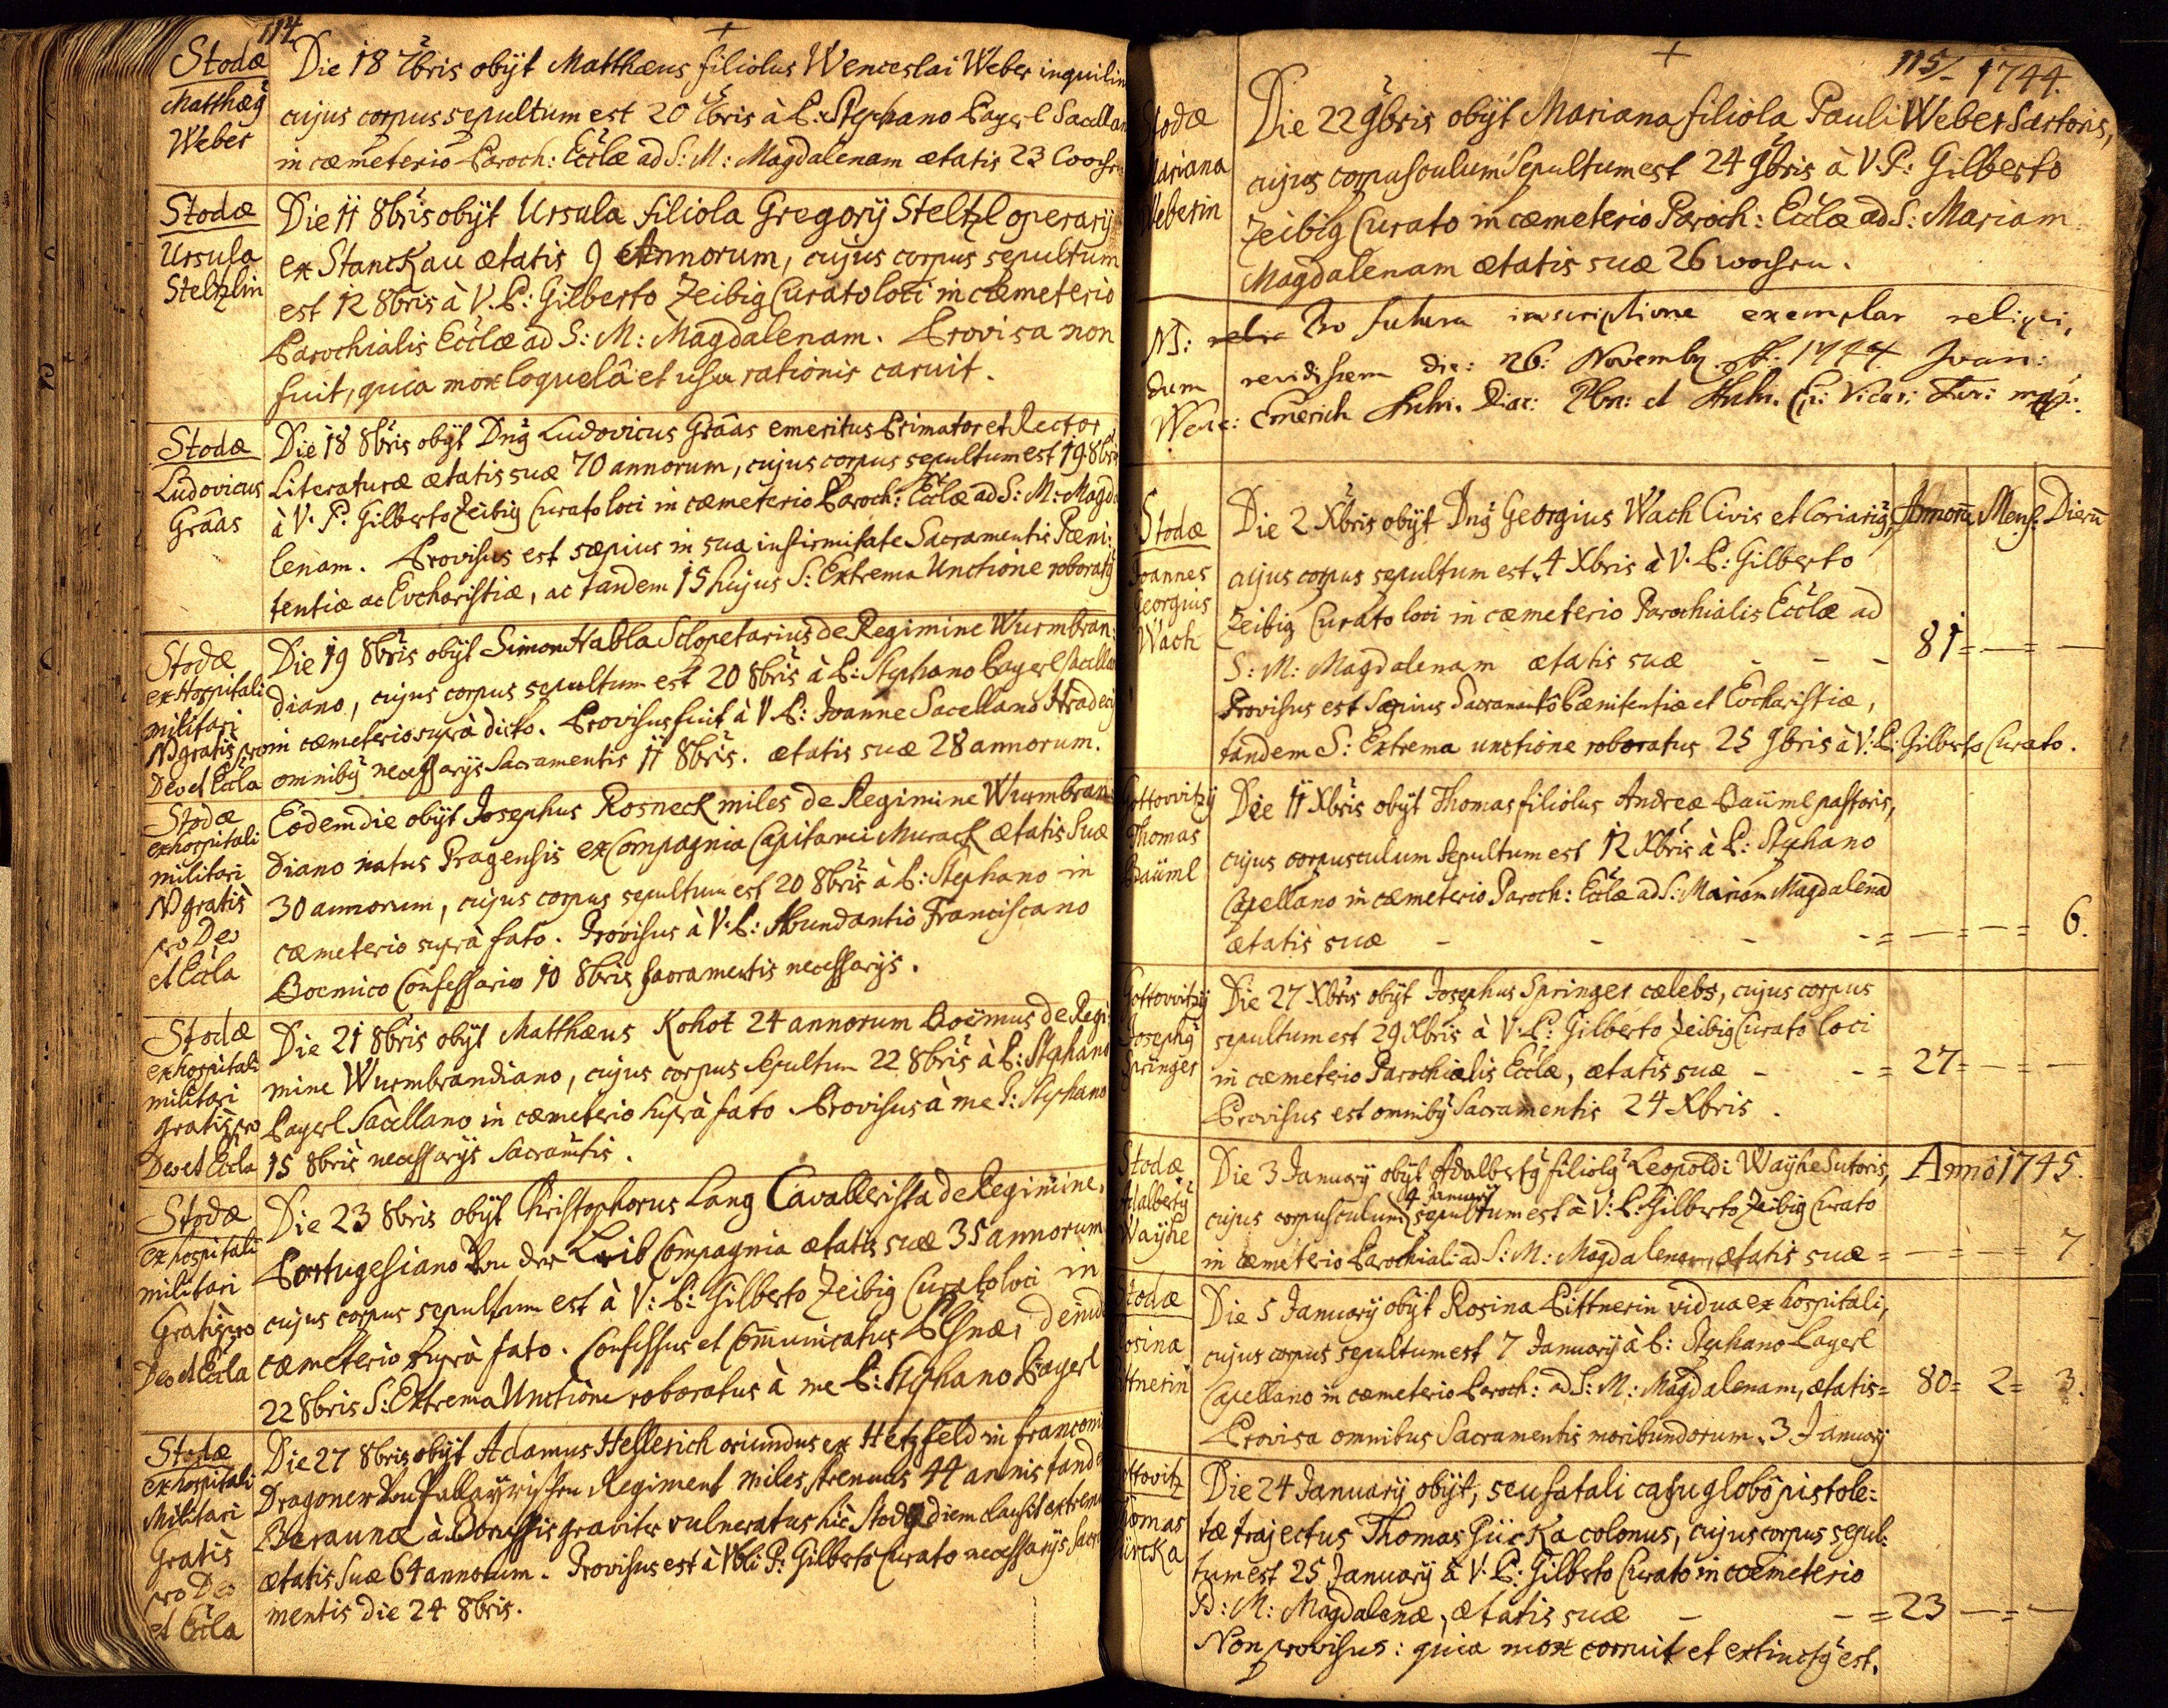 114
Stodæ
Matthæg
Weber
Die 18 7bris obijt Matthæus filiolus Wenceslai Weber inquilin
cujus corpus sepultum est 20 7bris à P: Stephano Pagerl Sacellan
in cæmeterio Paroch: Eccłæ ad S: M: Magdalenam ætatis 23 Wochen
Stodæ
Ursula
Steltzlin
Die 11 8bris obijt Ursula filiola Gregorij Steltzl operarij
ex Stanckau ætatis 9 Annorum, cujus corpus sepultum
est 12 8bris à V. P: Gilberto Zeibig Curato loci in cæmeterio
Parochialis Eccłæ ad S: M: Magdalenam. Provisa non
fuit, quia mox loquelâ et usu rationis caruit.
Stodæ
Ludovicus
Grâas
Die 18 8bris obijt Dng Ludovicus Grâas emeritus Primator et Rector
Literaturæ ætatis suæ 70 annorum, cujus corpus sepultum est 19 8bris
à V. P: Gilberto Zeibig Curato loci in cæmeterio Paroch: Eccłæ ad S: M: Magda
lenam. Provisus est sæpius in sua infirmitate Sacramentis Pæni:
tentiæ ac Evcharistiæ, ac tandem 15 hujus S: Extrema Unctione roboratg
Stodæ
ex Hospitali
militari
NB gratis pro
Deo et Eccła
Die 19 8bris obijt Simon Habla Sclopetarius de Regimine Wurmbran:
diano, cujus corpus sepultum est 20 8bris à P: Stephano Pagerl Sacellan
in cæmeterio suprà dicto. Provisus fuit à V P: Joanne Sacellano Hradec
omnibg necessarijs Sacramentis 11 8bris. ætatis suæ 28 annorum.
Stodæ
ex hospitali
militari
NB gratis
pro Deo
et Eccła
Eodem die obijt Josephus Rosneck miles de Regimine Wurmbran
diano natus Pragensis ex Compagnia Capitanei Murack ætatis suæ
30 annorum, cujus corpus sepultum est 20 8bris à P: Stephano in
cæmeterio suprà fato. Provisus à V: P: Abundantio Franciscano
Boemico Confessario 10 8bris sacramentis necessarijs.
Stodæ
ex hospitali
militari
gratis pro
Deo et Eccła
Die 21 8bris obijt Matthæus Kohot 24 annorum Boëmus de Regi:
mine Wurmbrandiano, cujus corpus sepultum 22 8bris à P: Stephano
Pagerl Sacellano in cæmeterio suprà fato Provisus à me P: Stephano
15 8bris necessarijs Sacramtis.
Stodæ
ex hospitali
militari
Gratis pro
Deo et Eccła
Die 23 8bris obijt Christophorus Lang Cavallerista de Regimine
Portugesiano Von der Leib Compagnia ætatis suæ 35 annorum
cujus corpus sepultum est à V: P: Gilberto Zeibig Curato loci in
cæmeterio suprà fato. Confessus et Communicatus Plsnæ, deind
22 8bris S: Extrema Unctione roboratus à me P: Stephano Pagerl
Stodæ
ex hospitali
Militari
Gratis
pro Deo
et Eccła
Die 27 8bris obijt Adamus Hellerich oriundus ex Hetzfeld in franconi
Dragoner Von Regiment miles strenuus 44 annis tand
Beraunæ à Borussis graviter vulneratus hic Stodæ diem clausit extrem
ætatis suæ 64 annorum. Provisus est à Vbli P: Gilberto Curato necessarijs Sacra
mentis die 24 8bris.
115 1744.
Stodæ
Mariana
Weberin
Die 22 9bris obijt Mariana filiola Pauli Weber Sartoris,
cujus corpusculum sepultum est 24 9bris à V. P: Gilberto
Zeibig Curato in cæmeterio Paroch: Eccłæ ad S: Mariam
Magdalenam ætatis suæ 26 wochen.
NB: Pro futura inscriptione exemplar reliqui,
dum revidissem die: 26: Novemb. 1744 Joan:
Wenc: Emerich Diac: et Vicar: For: mpp.
Annorū Mens: Dierū
Stodæ
Joannes
Georgius
Wach
Die 2 Xbris obijt Dng Georgius Wach Civis et Coriarig,
cujus corpus sepultum est 4 Xbris à V. P: Gilberto
Zeibig Curato loci in cæmeterio Parochialis Eccłæ ad
S: M: Magdalenam ætatis suæ - - - 81 = — = —
Provisus est sæpius Sacramentô Pænitentiæ et Evcharistiæ,
tandem S: Extrema unctione roboratus 25 9bris à V: P: Gilberto Curato.
Gottowitzij
Thomas
Bäuml
Die 11 Xbris obijt Thomas filiolus Andreæ Bäuml pastoris,
cujus corpusculum sepultum est 12 Xbris à P: Stephano
Capellano in cæmeterio Paroch: Eccłæ ad S: Mariam Magdalenā
ætatis suæ - - - - = — = — = 6.
Gottowitzij
Josephg
Springer
Die 27 Xbris obijt Josephus Springer cælebs, cujus corpus
sepultum est 29 Xbris à V. P: Gilberto Zeibig Curato loci
in cæmeterio Parochialis Eccłæ, ætatis suæ - - = 27 = — = —
Provisus est omnibg Sacramentis 24 Xbris.
Anno 1745.
Stodæ
Adalbertg
Wayhe
Die 3 Januarij obijt Adalbertg filiolg Leopoldi Wayhe Sutoris,
4 Januarij
cujus corpusculum sepultum est à V: P: Gilberto Zeibig Curato
in cæmeterio Parochiali ad S: M: Magdalenam, ætatis suæ = — = — = 7
Stodæ
Rosina
Pittnerin
Die 5 Januarij obijt Rosina Pittnerin vidua ex hospitali,
cujus corpus sepultum est 7 Januarij à P: Stephano Pagerl
Capellano in cæmeterio Paroch: ad S: M: Magdalenam, ætatis = 80 = 2 = 3.
Provisa omnibus Sacramentis moribundorum 3 Januarij
Gottovitz
Thomas
Gürcka
Die 24 Januarij obijt, seu fatali casu globô pistole:
tæ trajectus Thomas Gürcka colonus, cujus corpus sepul:
tum est 25 Januarij à V. P: Gilberto Curato in cœmeterio
D: M: Magdalenæ, ætatis suæ - - = 23 — = —
Non provisus: quia mox corruit et extinctg est.